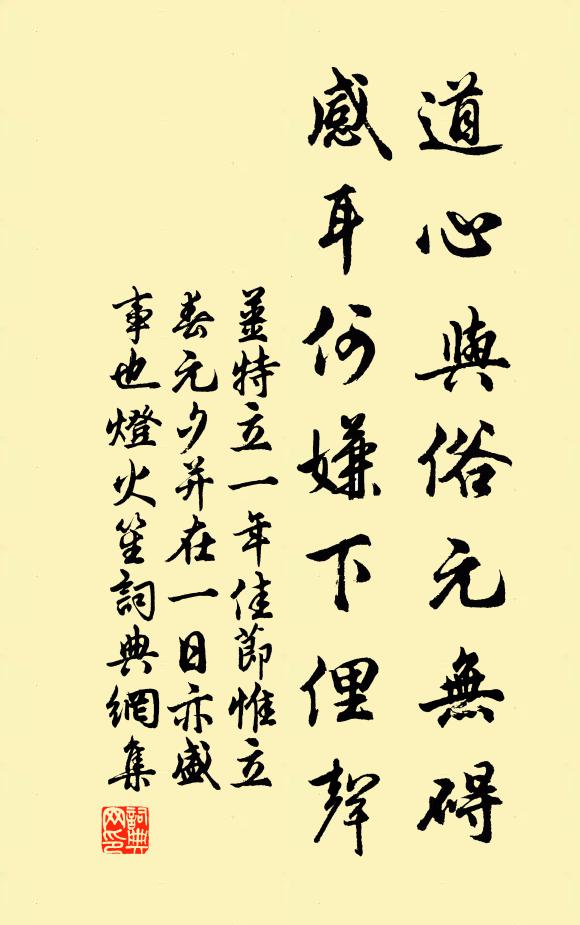 道心與俗元無碍
感耳何嫌下俚聲
姜特立一年佳節惟立
春元夕并在一日亦盛
事也燈火笙詞典網集
詞典网印